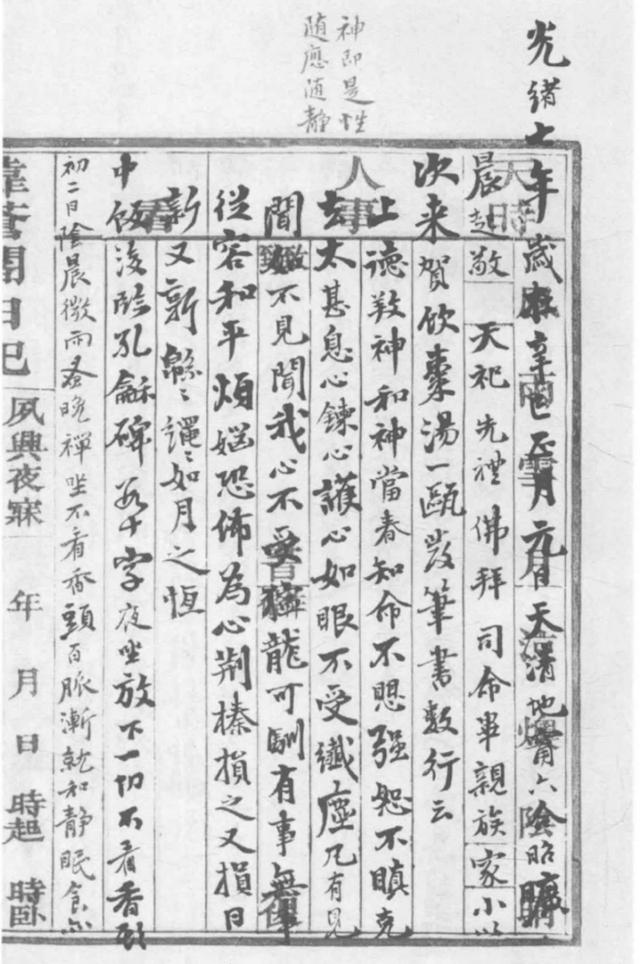 神即是性
随應随静
光緒七年歲在辛巳正月元日天清地甯六陰昭曠
晨起敬天祀先禮佛拜司命畢親族家小以
次来賀飲棗湯一甌發筆書数行云
上德敦神和神當春知命不思强恕不瞋克
去太甚息心鍊心護心如眼不受纖塵凡有見
聞如不見聞我心不受獰龍可馴有事無事
從容和平煩惱恐怖為心荆榛損之又損日
新又新緜緜繩繩如月之恆
中飯後臨孔龢碑若干字夜坐放下一切不看香頭
初二日陰晨微雨蚤晚禪坐不看香頭百脈漸就和静眠食亦
夙興夜寐 年 月 日 時起 時卧
天時
人事